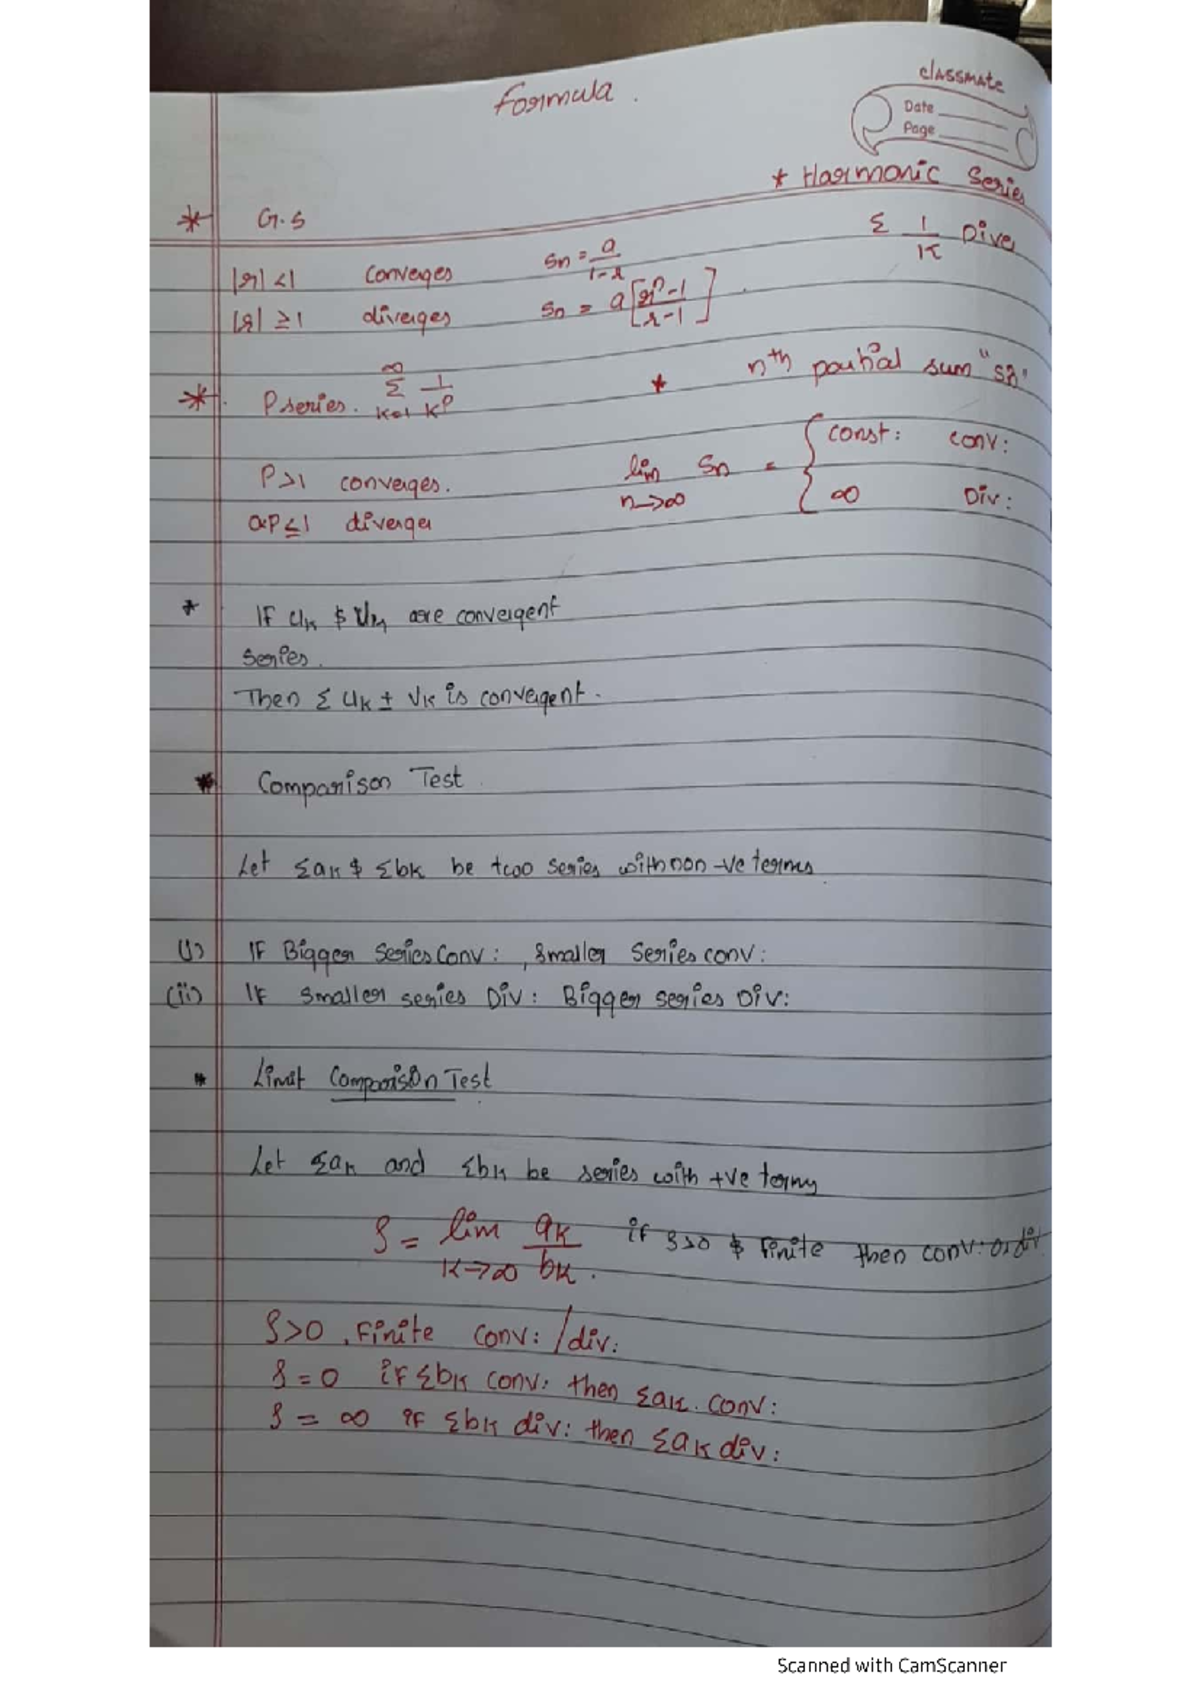 Formula.
classmate
Date
Page
* Harmonic Series
* G.S
Σ 1/K Dive
|r| <1 Converges Sn = a/1-r
|r| ≥1 diverges Sn = a[r^n-1/r-1]
* nth partial sum "Sn"
* P series. ∞ Σ K=1 1/K^P
lim n→∞ Sn = { const: conv:
∞ Div:
P>1 converges.
0<P≤1 diverges
* IF UK & are convergent
Series.
Then Σ UK ± VK is convergent.
* Comparison Test
Let Σak & Σbk be two series with non -ve terms
(i) IF Bigger Series Conv: , Smaller Series conv:
(ii) IF smaller series Div: Bigger series Div:
* Limit Comparison Test
Let Σak and Σbk be series with +ve terms
ρ = lim K→∞ ak/bk. if ρ>0 & Finite then conv: or div
ρ>0 , Finite conv: /div:
ρ=0 if Σbk conv: then Σak. conv:
ρ = ∞ if Σbk div: then Σak div:
Scanned with CamScanner